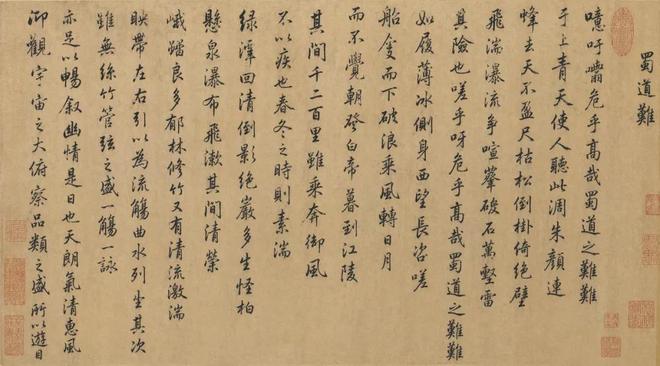 蜀道難
噫吁嚱危乎高哉蜀道之難難
于上青天使人聽此凋朱顏連
峰去天不盈尺枯松倒掛倚絕壁
飛湍瀑流爭喧破石萬壑雷
其險也嗟乎呀危乎高哉蜀道之難難
如履薄冰側身西望長咨嗟
船而下破浪乘風轉日月
而不覺朝發白帝暮到江陵
其間千二百里雖乘奔御風
不以疾也春冬之時則素湍
綠潭回清倒影絕巖多生怪柏
懸泉瀑布飛漱其間清榮
峨良多郁林修竹又有清流激湍
映帶左右引以為流觴曲水列坐其次
雖無絲竹管弦之盛一觴一詠
亦足以暢叙幽情是日也天朗氣清惠風
仰觀宇宙之大俯察品類之盛所以遊目